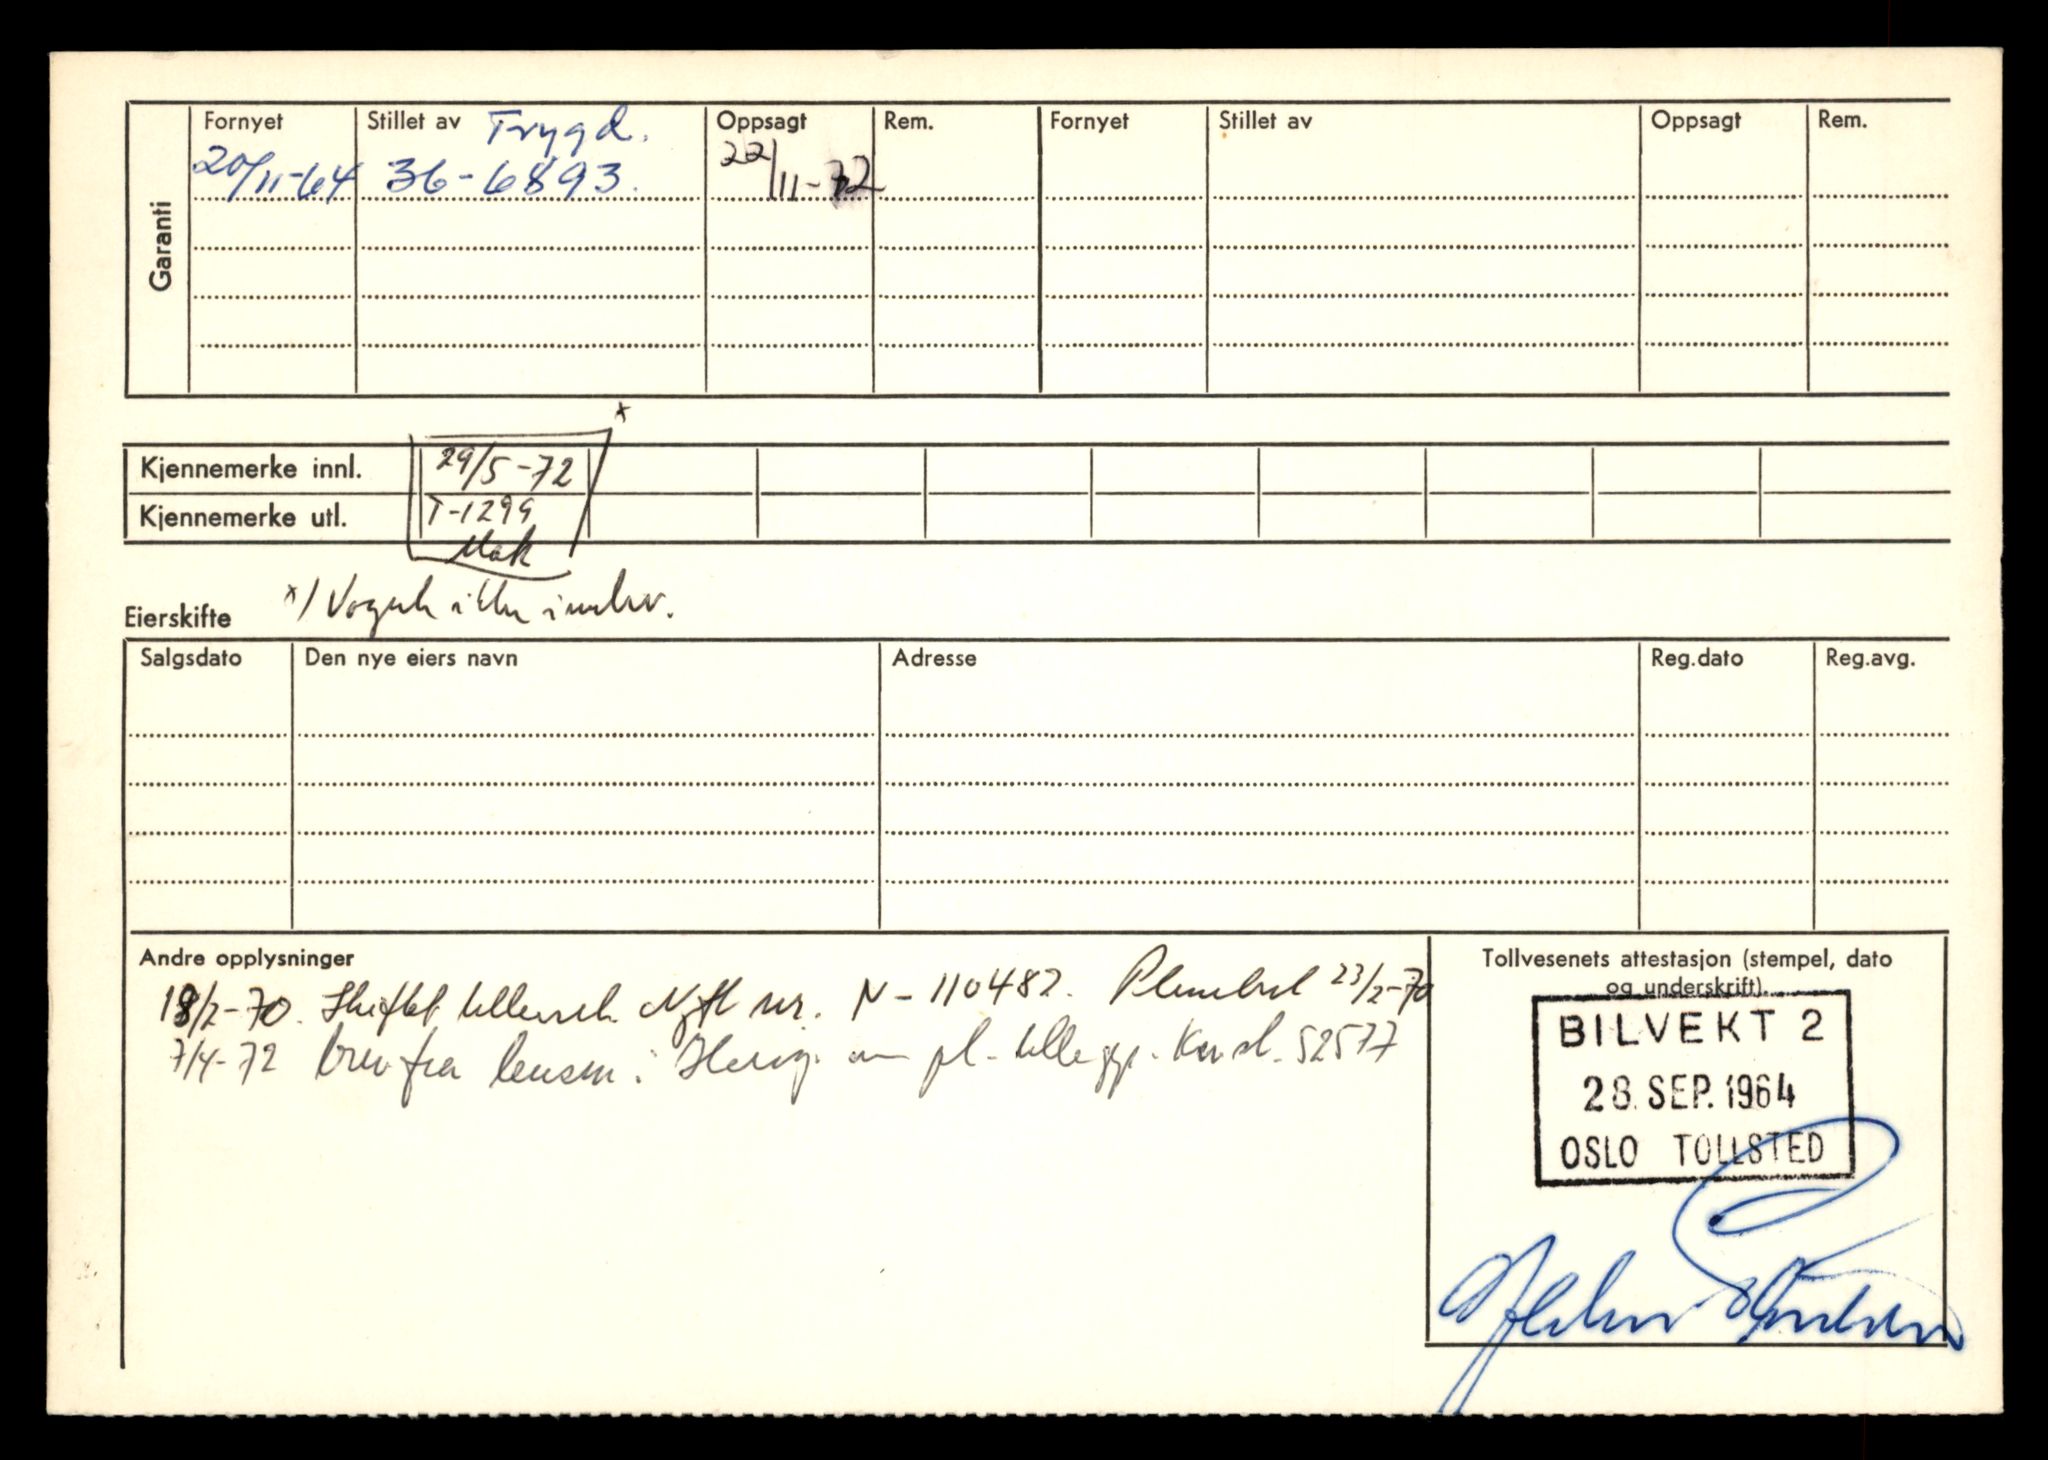 Garanti
Fornyet Stillet av Trygd. Oppsagt Rem. Fornyet Stillet av Oppsagt Rem.
20/11-64 36-6893. 22/11-72
*
Kjennemerke innl. 29/5-72
Kjennemerke utl. T-1299
Mak
*) Vognk ikke innlev.
Eierskifte
Salgsdato Den nye eiers navn Adresse Reg.dato Reg.avg.
Andre opplysninger
18/2-70. Skiftet Nytt nr. N-110482. Plombert 23/2-70
7/4-72 brev fra om pl. 52577
Tollvesenets attestasjon (stempel, dato
og underskrift).
BILVEKT 2
28. SEP. 1964
OSLO TOLLSTED